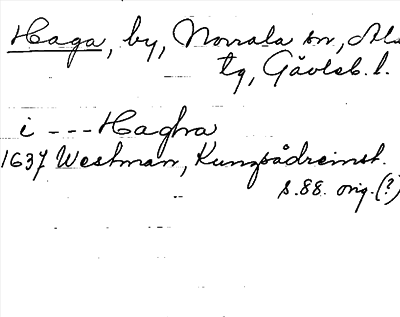 Haga, by, Norrala sn, Ala
tg, Gävleb. l.
i --- Haghra
1637 Westman, Kungsådreinst.
s. 88. orig. (?)